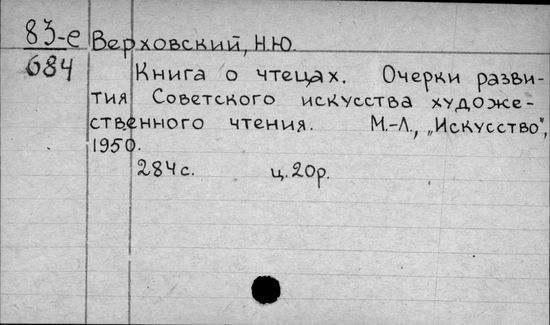 83-е
684
Верховский, Н.Ю.
Книга о чтецах. Очерки разви-
тия Советского искусства художе-
ственного чтения. М.-Л., „Искусство",
1950.
284с. ц. 20р.